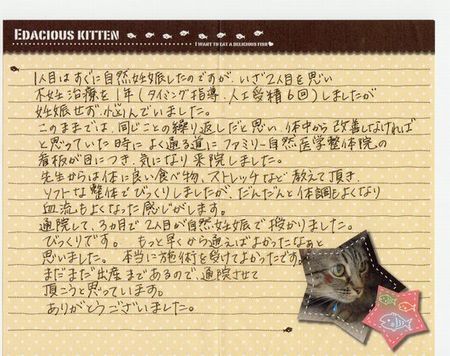 EDACIOUS KITTEN
I WANT TO EAT A DELICIOUS FISH
1人目はすぐに自然妊娠したのですが、いざ2人目を思い
不妊治療を1年(タイミング指導、人工受精6回)しましたが
妊娠せず、悩んでいました。
このままでは、同じことの繰り返しだと思い、体中から改善しなければ
と思っていた時によく通る道にファミリー自然医学整体院の
看板が目につき、気になり来院しました。
先生からは体に良い食べ物、ストレッチなど教えて頂き、
ソフトな整体でびっくりしましたが、だんだんと体調もよくなり
血流もよくなった感じがします。
通院して、3ヵ月で2人目が自然妊娠で授かりました。
びっくりです。もっと早くから通えばよかったなぁと
思いました。本当に施術を受けてよかったです。
まだまだ出産まであるので、通院させて
頂こうと思っています。
ありがとうございました。